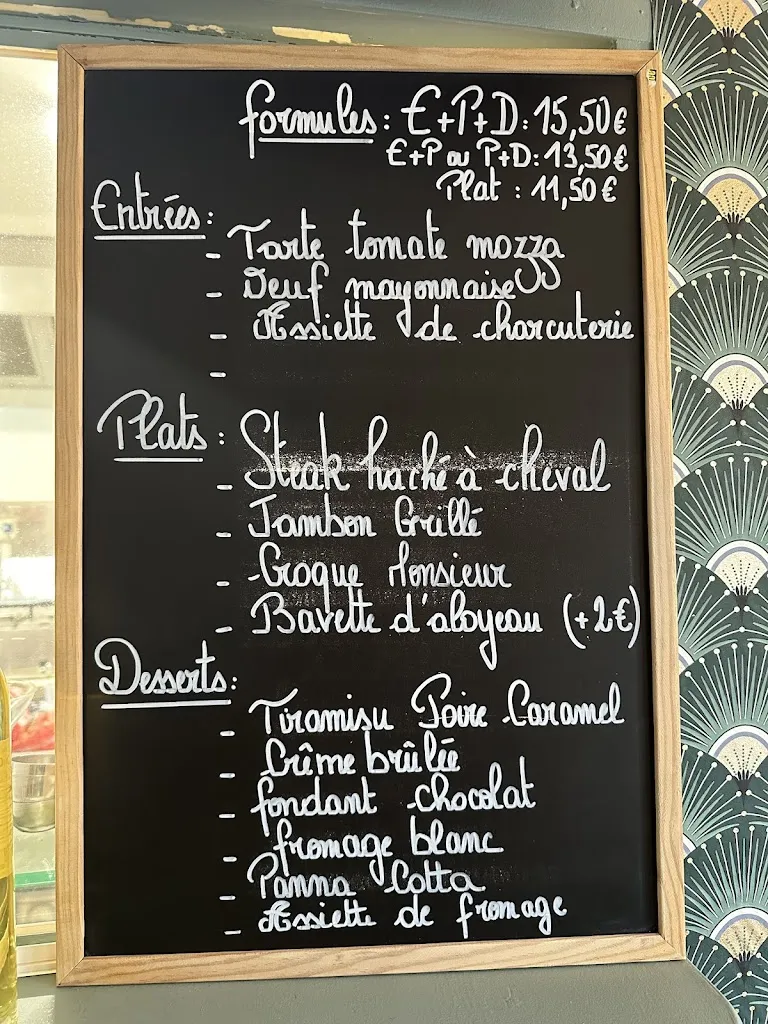 formules: E+P+D: 15,50€
E+P ou P+D: 13,50€
Plat : 11,50€
Entrées:
- Tarte tomate mozza
- Oeuf mayonnaise
- Assiette de charcuterie
-
Plats:
- Steak haché à cheval
- Jambon Grillé
- Croque Monsieur
- Bavette d'aloyeau (+2€)
Desserts:
- Tiramisu Poire Caramel
- Crême brûlée
- fondant chocolat
- fromage blanc
- Panna Cotta
- Assiette de fromage